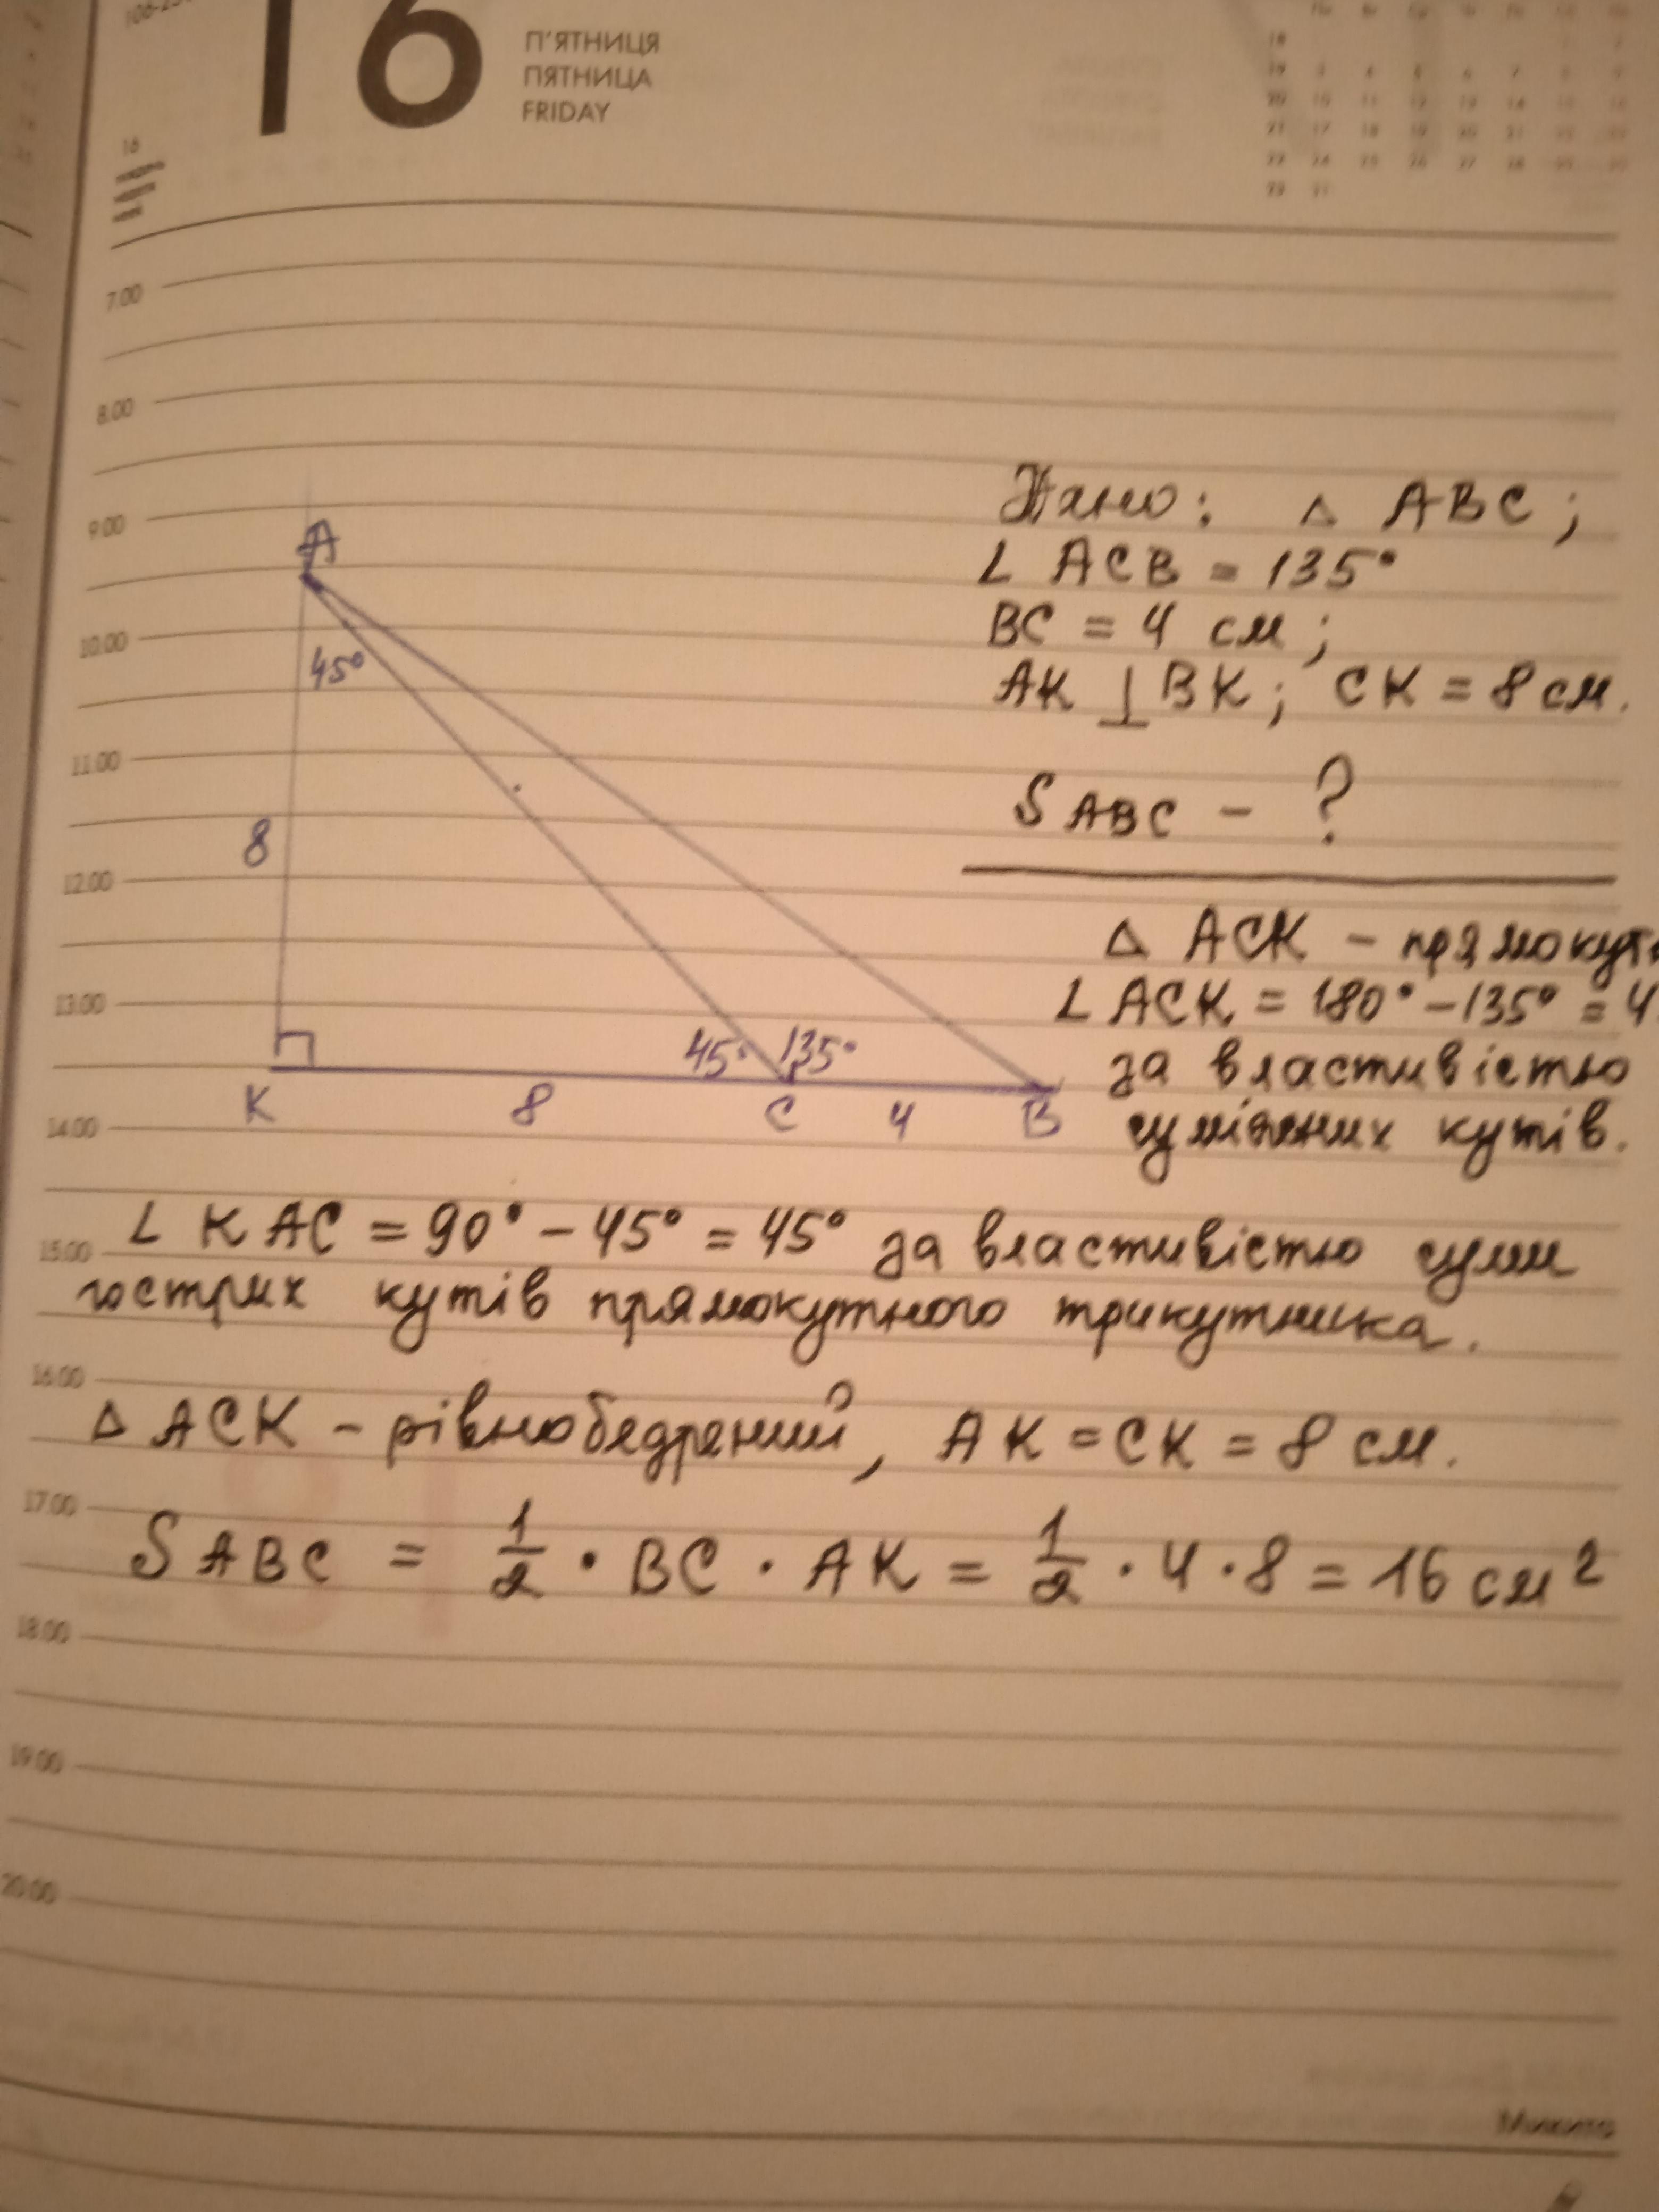 16
П'ЯТНИЦЯ
ПЯТНИЦА
FRIDAY
16
7.00
8.00
9.00
10.00
11.00
12.00
13.00
14.00
15.00
16.00
17.00
18.00
19.00
20.00
A
45°
8
K
8
45°
135°
C
4
B
Дано: △ ABC;
∠ ACB = 135°
BC = 4 см;
AK ⊥ BK; CK = 8 см.
S ABC - ?
△ ACK - прямокут
∠ ACK = 180° - 135° = 4
за властивістю
суміжних кутів.
∠ KAC = 90° - 45° = 45° за властивістю суми
гострих кутів прямокутного трикутника.
△ ACK - рівнобедрений, AK = CK = 8 см.
S ABC = 1/2 · BC · AK = 1/2 · 4 · 8 = 16 см²